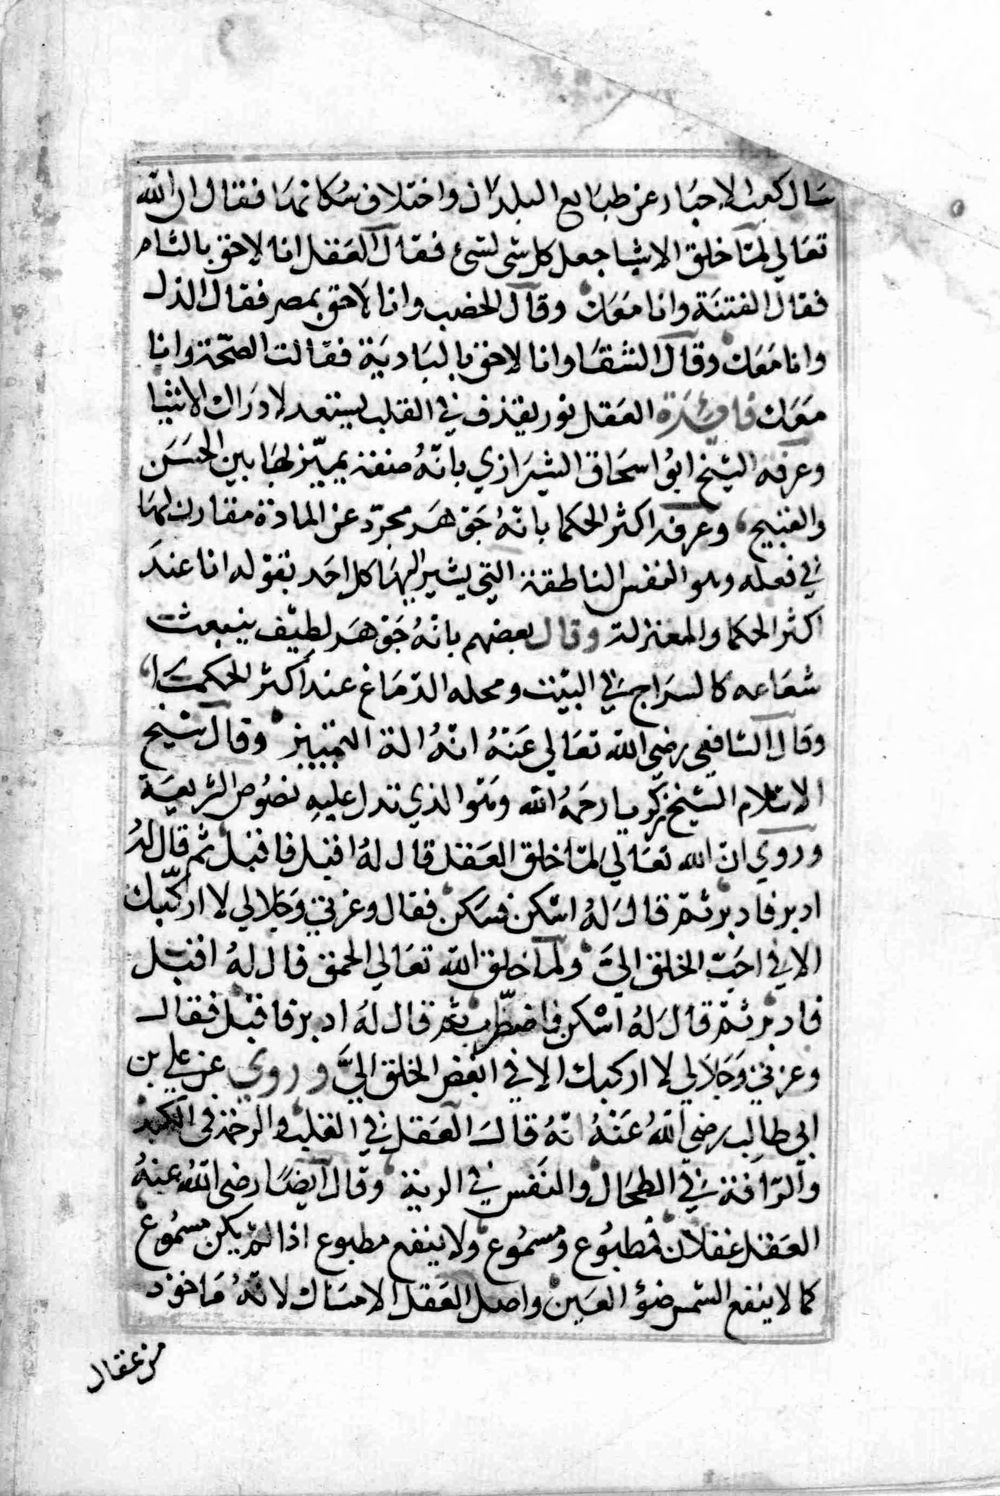 سال كعب الاحبار عن طبايع البلدان واختلاف سكانها فقال ان الله
تعالي لمّا خلق الاشيا جعل كل شي لشئ فقال العقل انا لاحق بالشام
فقال الفتنة وانا معك وقال الخصب وانا لاحق بمصر فقال الذل
وانا معك وقال الشقا وانا لاحق بالبادية فقالت الصحّة وانا
معك فائدة العقل نور يقذف في القلب يستعد لادراك الاشيا
وعرفه الشيخ ابو اسحاق الشيرازي بانّهُ صفة يميّز بها بين الحسن
والقبيح وعرفه اكثر الحكما بانّهُ جوهر مجرّد عن المادة مقارن لها
في فعله وهو النفس الناطقة التي يشير اليها كل احد بقوله انا عند
اكثر الحكما والمعتزلة وقال بعضهم بانهُ جوهر لطيف ينبعث
شعاعه كالسراج في البيت ومحله الدماغ عند اكثر الحكما
وقال الشافعي رضي الله تعالي عنهُ انهُ الة التمييز وقال شيخ
الاسلام الشيخ زكريا رحمهُ الله وهو الذي تدل عليه نصوص الشريعة
وروي انّ الله تعالي لمّا خلق العقل قال لهُ اقبل فاقبل ثم قال لهُ
ادبر فادبر ثمّ قال لهُ اسكن فسكن فقال وعزتي وجلالي لا اركبك
الا في احبّ الخلق اليّ ولما خلق الله تعالي الحمق قال لهُ اقبل
فادبر ثمّ قال لهُ اسكن فاضطرب ثم قال لهُ ادبر فاقبل فقال
وعزتي وجلالي لا اركبك الا في ابغض الخلق اليَّ وروي عن علي بن
ابي طالب رضي اللهُ عنهُ انهُ قال العقل في القلب والرحمة في الكبد
والرّافة في الطحال والنفس في الرية وقال ايضًا رضي اللهُ عنهُ
العقل عقلان فمطبوع ومسموع ولا ينفع مطبوع اذا لم يكن مسموع
كما لا ينفع الشمس ضؤ العين واصل العقل الامساك لانّهُ ماخوذ
من عقال